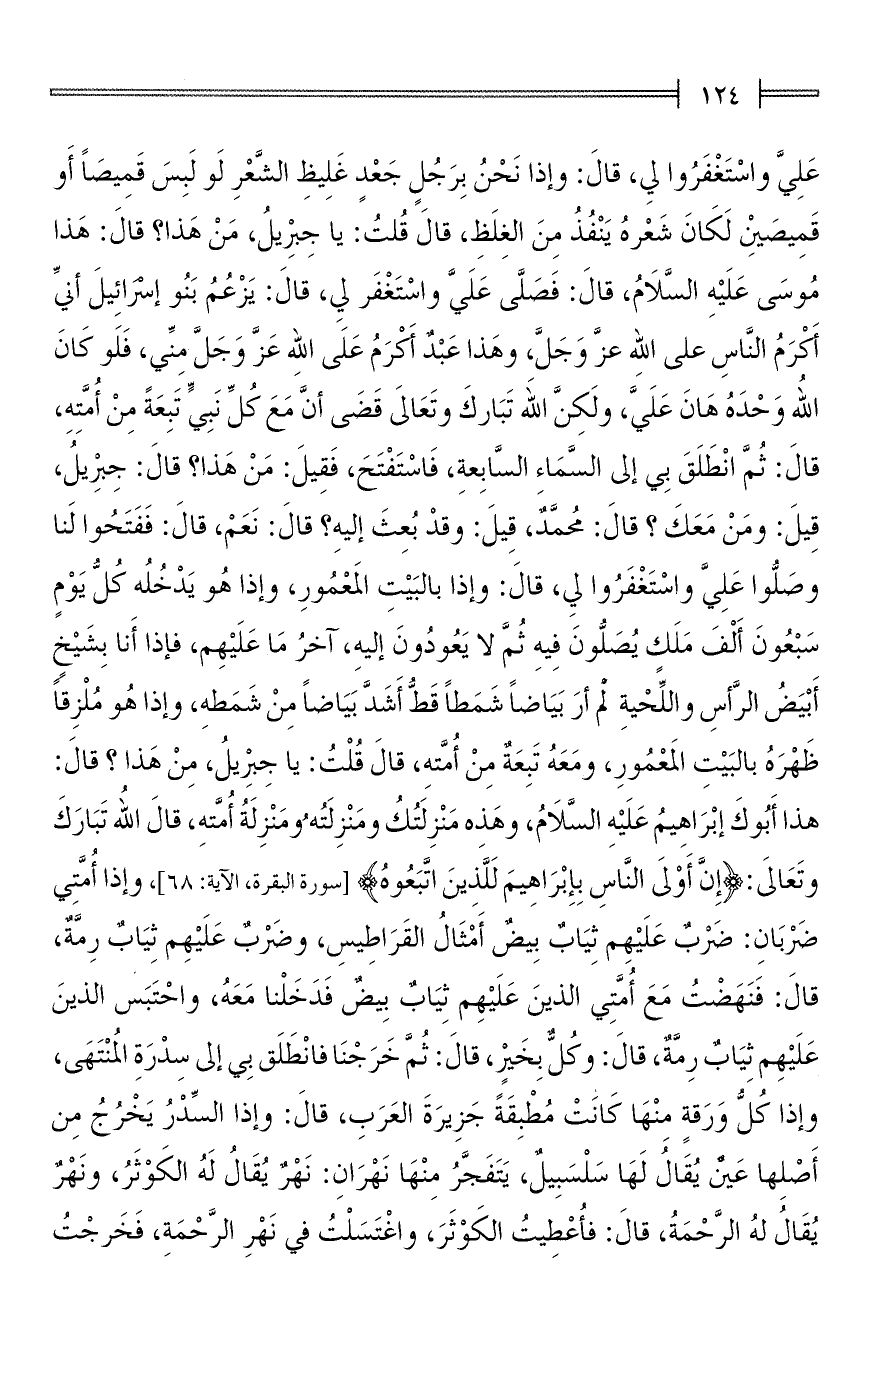 ١٢٤
عَلِيَّ واسْتَغْفَرُوا لي، قالَ: وإذا نَحْنُ بِرَجُلٍ جَعْدٍ غَلِيظِ الشَّعْرِ لَو لَبِسَ قَمِيصَاً أو
قَمِيصَيْنْ لَكَانَ شَعْرهُ يَنْفُذُ مِنَ الغلَظِ، قالَ قُلتُ: يا جِبْرِيلُ، مَنْ هَذا؟ قالَ: هَذا
مُوسَى عَلَيْهِ السَّلَامُ، قالَ: فَصَلَّى عَلَيَّ واسْتَغْفَر لي، قالَ: يَزْعُمُ بَنُو إسْرَائِيلَ أنيِّ
أَكْرَمُ النَّاسِ على اللهِ عزَّ وَجَلَّ، وهَذا عَبْدٌ أَكْرَمُ عَلَى اللهِ عَزَّ وَجَلَّ مِنِّي، فَلَو كَانَ
اللهُ وَحْدَهُ هَانَ عَلَيَّ، ولَكِنَّ اللهَ تَبَاركَ وتَعَالَى قَضَى أنَّ مَعَ كُلِّ نَبِيٍّ تَبِعَةً مِنْ أُمَّتِهِ،
قالَ: ثُمَّ انْطَلَقَ بِي إلى السَّمَاءِ السَّابعةِ، فَاسْتَفْتَحَ، فَقِيلَ: مَنْ هَذا؟ قالَ: جِبْرِيلُ،
قيلَ: ومَنْ مَعَكَ ؟ قالَ: مُحمَّدٌ، قيلَ: وقدْ بُعِثَ إليهِ؟ قالَ: نَعَمْ، قالَ: فَفَتَحُوا لَنا
وصَلُّوا عَليَّ واسْتَغْفَرُوا لِي، قالَ: وإذا بالبَيْتِ المَعْمُورِ، وإذا هُو يَدْخُلُه كُلُّ يَوْمٍ
سَبْعُونَ أَلْفَ مَلَكٍ يُصَلُّونَ فِيهِ ثُمَّ لا يَعُودُونَ إليهِ، آخرُ مَا عَلَيْهِم، فإذا أنا بِشَيْخٍ
أَبْيَضُ الرَّأسِ واللِّحْيةِ لَمْ أرَ بَيَاضاً شَمَطاً قَطُّ أَشَدَّ بَيَاضاً مِنْ شَمَطِهِ، وإذا هُو مُلْزِقاً
ظَهْرَهُ بالبَيْتِ المَعْمُورِ، ومَعَهُ تَبِعَةٌ مِنْ أُمَّتهِ، قالَ قُلْتُ: يا جِبْرِيلُ، مِنْ هَذا ؟ قالَ:
هذا أَبُوكَ إبْرَاهِيمُ عَلَيْهِ السَّلَامُ، وهَذِه مَنْزِلَتُكُ ومَنْزِلتُهُ ومَنْزِلَةُ أُمَّتهِ، قالَ اللهُ تَبَارَكَ
وتَعَالَى: ﴿إنَّ أَوْلَى النَّاسِ بِإبْرَاهِيمَ لَلَّذِينَ اتَّبَعُوهُ﴾ [سورة البقرة، الآية: ٦٨]، وإذا أُمَّتي
ضَرْبَانِ: ضَرْبٌ عَلَيْهِم ثِيَابٌ بِيضٌ أَمْثَالُ القَرَاطِيسِ، وضَرْبٌ عَلَيْهِم ثِيَابٌ رِمَّةٌ،
قالَ: فَنَهَضْتُ مَعَ أُمَّتي الذينَ عَلَيْهِم ثِيَابٌ بيضٌ فَدَخَلْنا مَعَهُ، واحْتَبَس الذينَ
عَلَيْهِم ثِيَابٌ رِمَّةٌ، قالَ: وكُلٌّ بِخَيْرٍ، قالَ: ثُمَّ خَرَجْنَا فانْطَلَق بي إلى سِدْرَةِ المُنْتَهَى،
وإذا كُلُّ وَرَقةٍ مِنْهَا كَانَتْ مُطْبِقَةً جَزِيرَةَ العَرَبِ، قالَ: وإذا السِّدْرُ يَخْرُجُ مِن
أَصْلِها عَينٌ يُقَالُ لَهَا سَلْسَبِيلٌ، يَتَفَجَّرُ مِنْهَا نَهْرَان: نَهْرٌ يُقَالُ لَهُ الكَوْثَرُ، ونَهْرٌ
يُقَالُ لهُ الرَّحْمَةُ، قالَ: فأُعْطِيتُ الكَوْثَرَ، واغْتَسَلْتُ في نَهْرِ الرَّحْمَةِ، فَخَرجْتُ